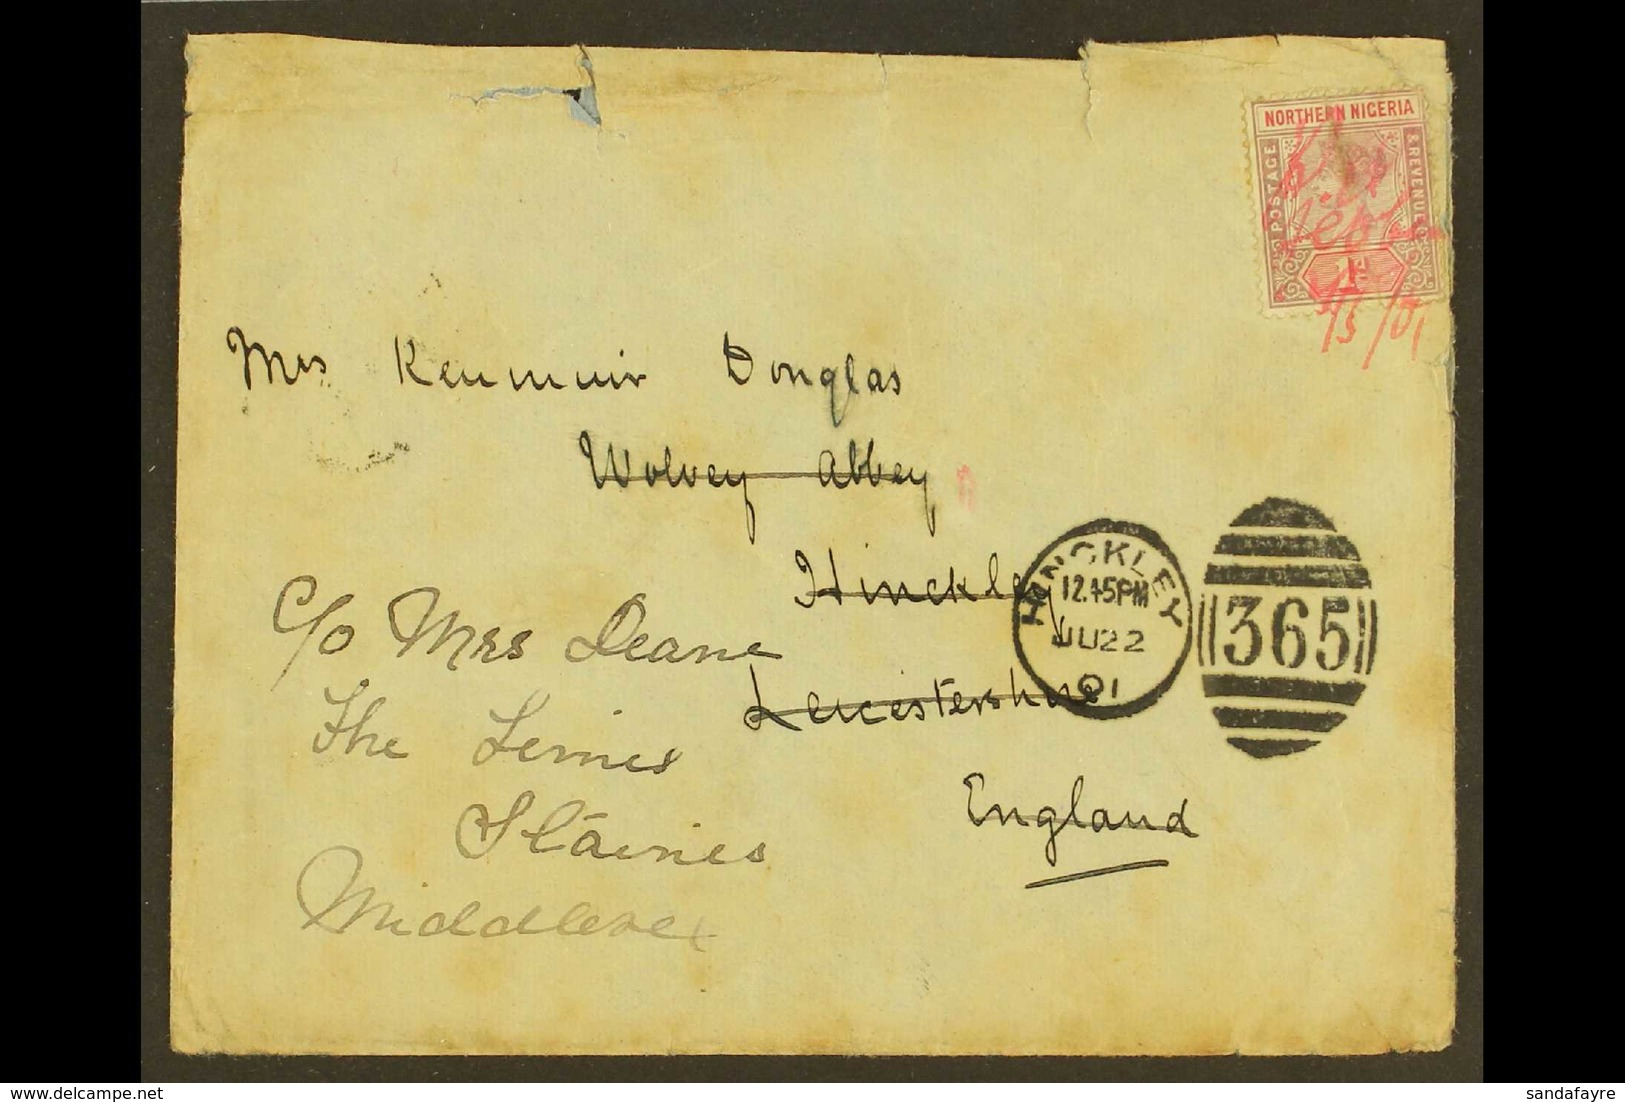 NORTHERN NIGERIA
POSTAGE
& REVENUE
1d
/5/01
Mrs Kenmuir Douglas
Wolvey Abbey,
Hinckley
Leicestershire
England
HINCKLEY
12.45PM
JU 22
01
365
c/o Mrs Deane
The Limes
Staines
Middlesex
delcampe.net
sandafayre